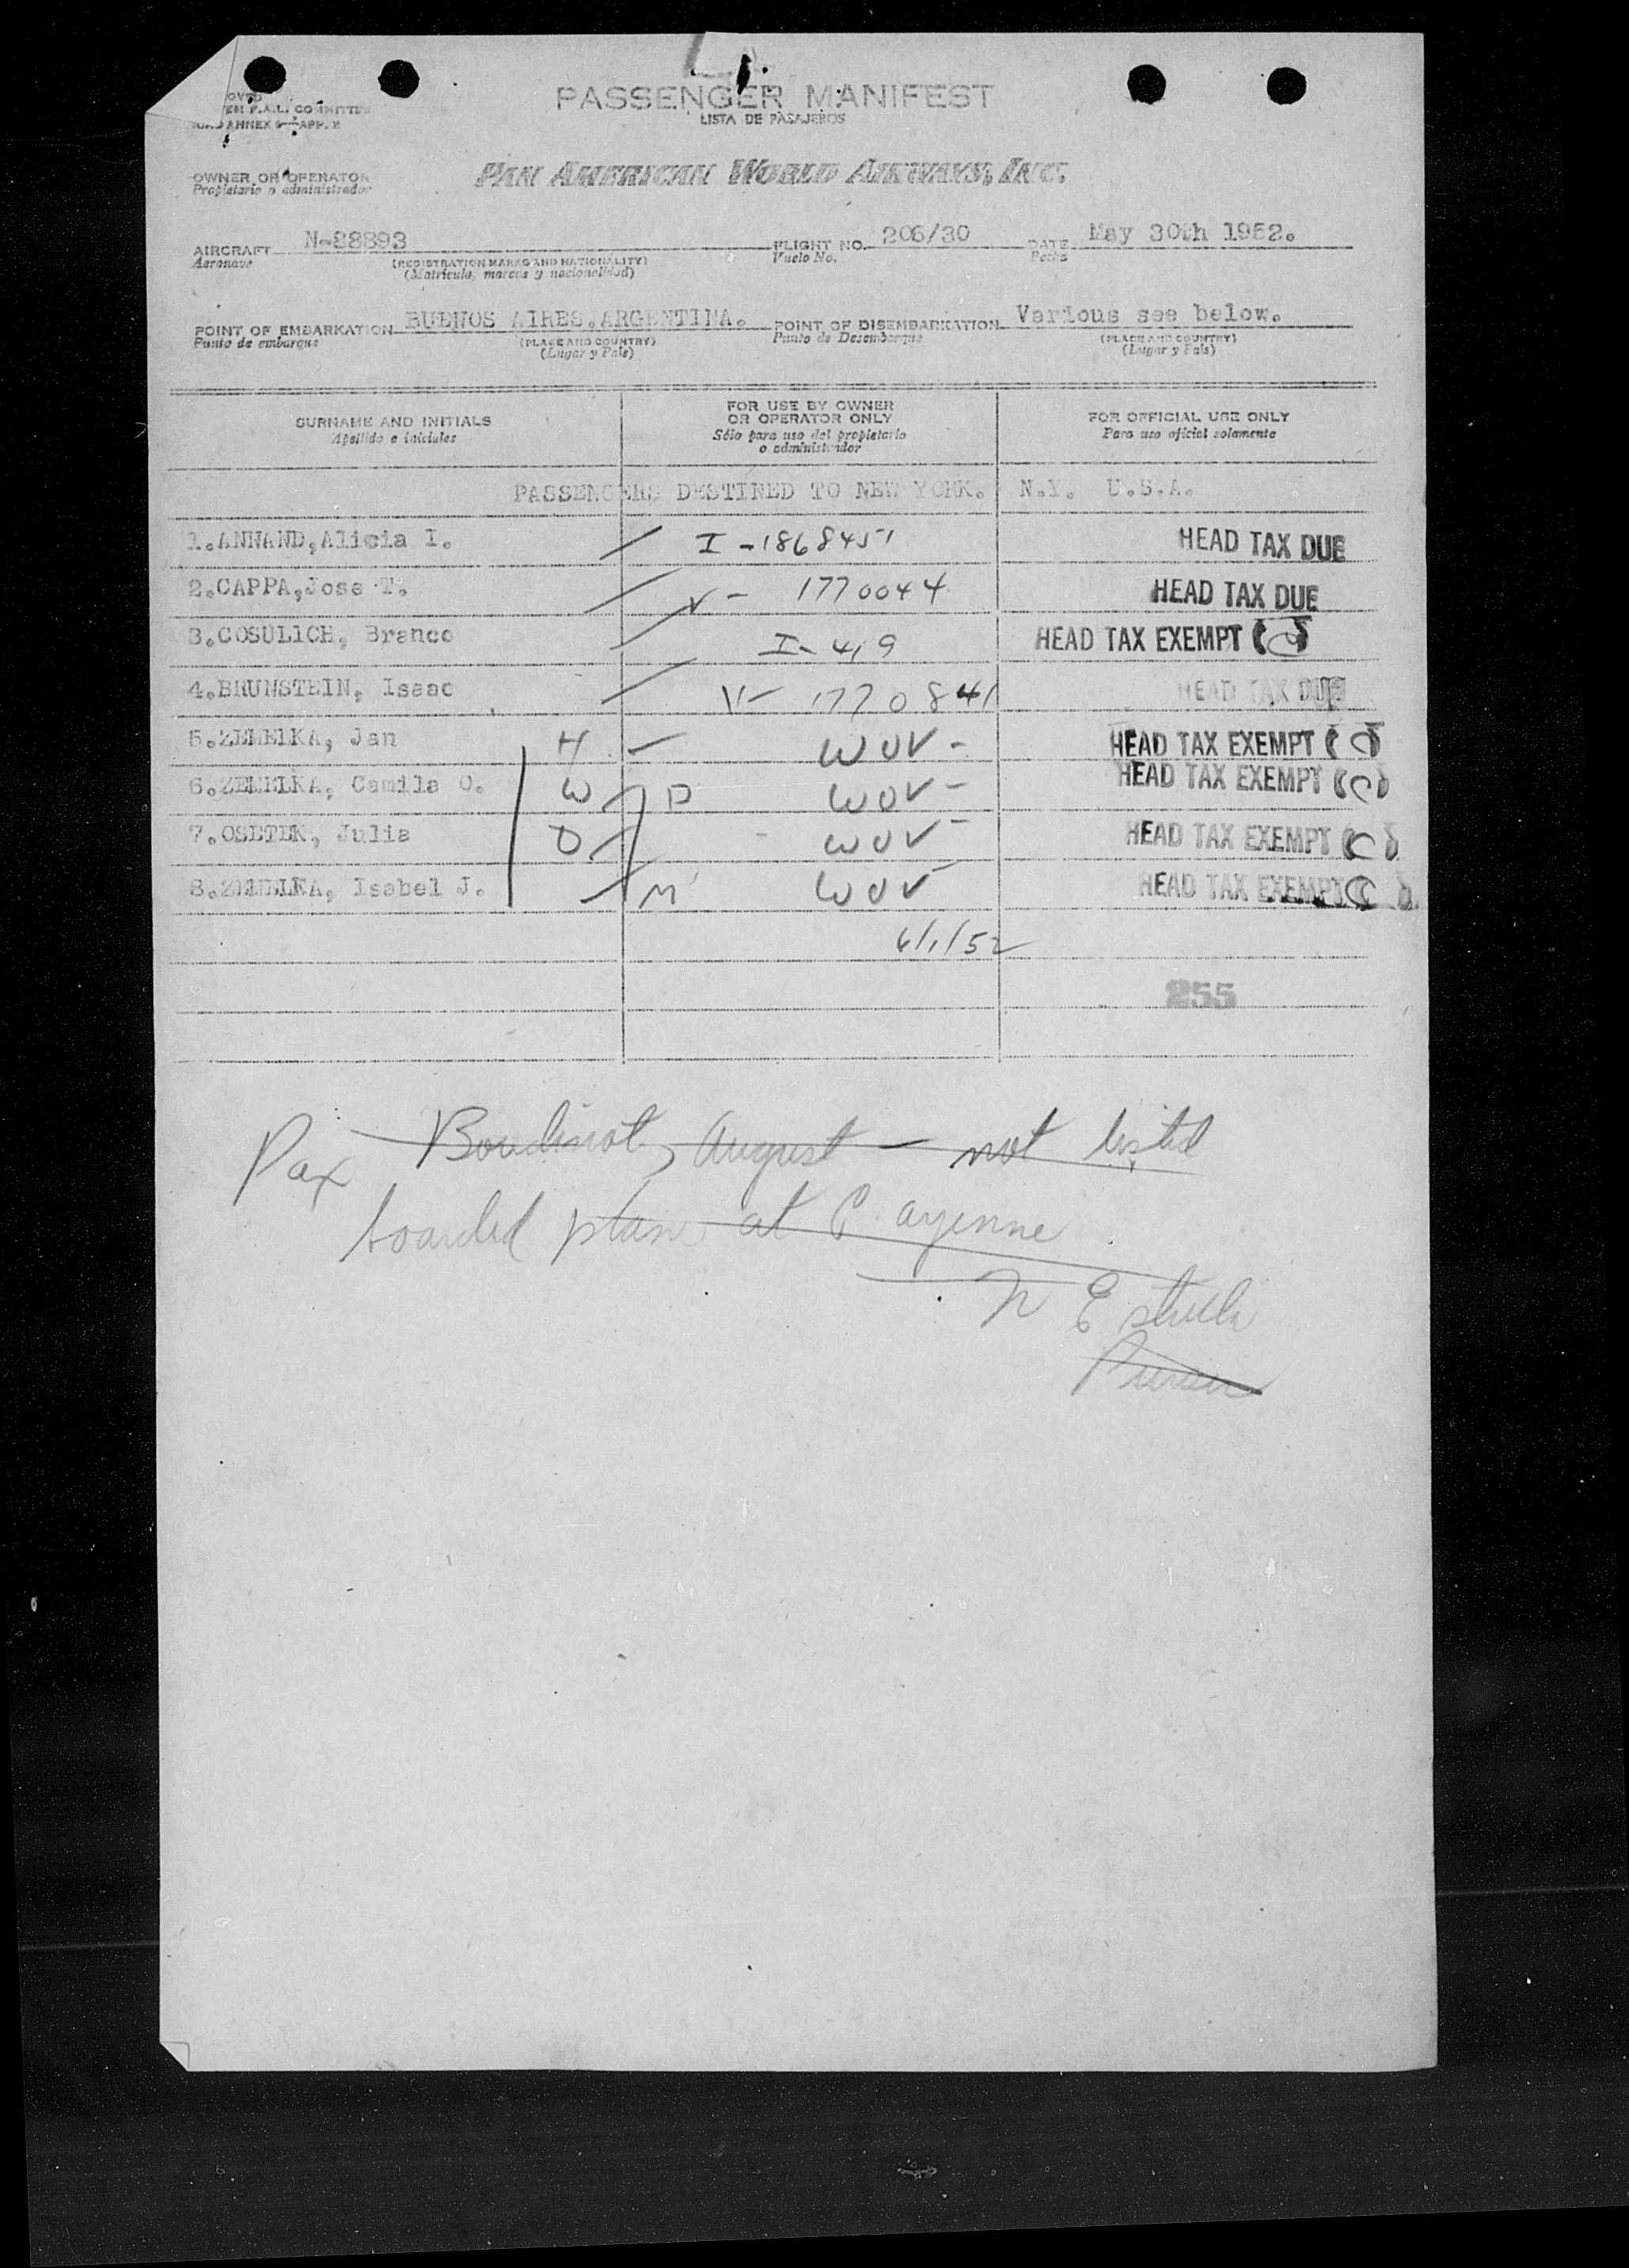 PASSENGER MANIFEST
LISTA DE PASAJEROS
F.A.L. COMMITTEE
ANNEX 9 APP.
OWNER OR OPERATOR
Propietario o administrador
PAN AMERICAN WORLD AIRWAYS, INC.
AIRCRAFT N-88893 FLIGHT NO. 206/30 DATE May 30th 1952.
Aeronave (REGISTRATION MARKS AND NATIONALITY) Vuelo No. Fecha
(Matrícula, marcas y nacionalidad)
POINT OF EMBARKATION BUENOS AIRES.ARGENTINA. POINT OF DISEMBARKATION Various see below.
Punto de embarque (PLACE AND COUNTRY) Punto de Desembarque (PLACE AND COUNTRY)
(Lugar y País) (Lugar y País)
SURNAME AND INITIALS
Apellido e iniciales
FOR USE BY OWNER
OR OPERATOR ONLY
Sólo para uso del propietario
o administrador
FOR OFFICIAL USE ONLY
Para uso oficial solamente
PASSENGERS DESTINED TO NEW YORK. N.Y. U.S.A.
1.ANNAND,Alicia I. I-1868451 HEAD TAX DUE
2.CAPPA,Jose T. V- 1770044 HEAD TAX DUE
3.COSULICH, Branco I-419 HEAD TAX EXEMPT
4.BRUNSTEIN, Isaac V- 1770841 HEAD TAX DUE
5. Jan H WOV- HEAD TAX EXEMPT
6. Camila O. W WOV- HEAD TAX EXEMPT
7.OSETEK, Julia D WOV- HEAD TAX EXEMPT
8. Isabel J. M WOV HEAD TAX EXEMPT
6/1/52
255
Pax Boudinot, August - not listed
boarded plane at Cayenne
N Estrella
Purser